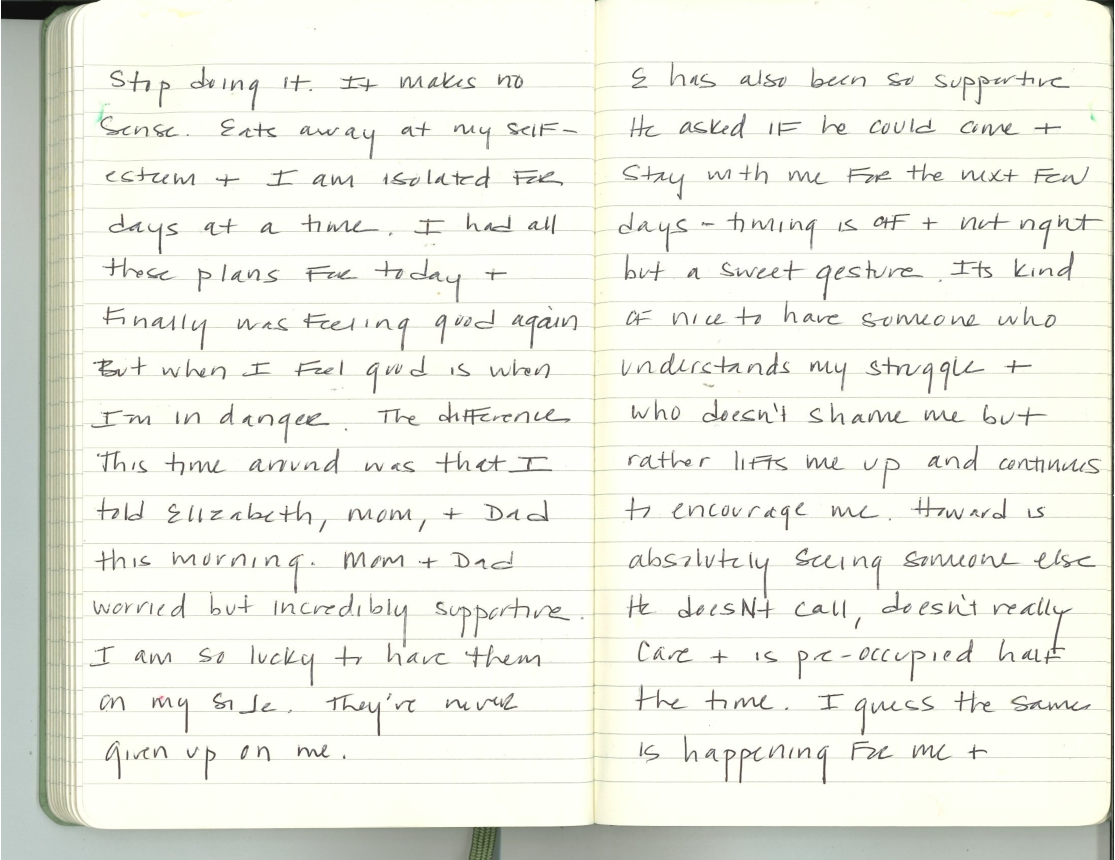 Stop doing it. It makes no
Sense. Eats away at my self-
esteem + I am isolated For
days at a time. I had all
these plans For today +
Finally was Feeling good again
But when I Feel good is when
I'm in danger. The difference
This time around was that I
told Elizabeth, mom, + Dad
this morning. Mom + Dad
worried but incredibly supportive.
I am so lucky to have them
on my side. They've never
given up on me.
E has also been so supportive
He asked IF he could come +
Stay with me For the next Few
days - timing is off + not right
but a sweet gesture. Its kind
of nice to have someone who
understands my struggle +
who doesn't shame me but
rather lifts me up and continues
to encourage me. Howard is
absolutely seeing someone else
He doesNt call, doesn't really
Care + is pre-occupied half
the time. I guess the same
is happening For me +